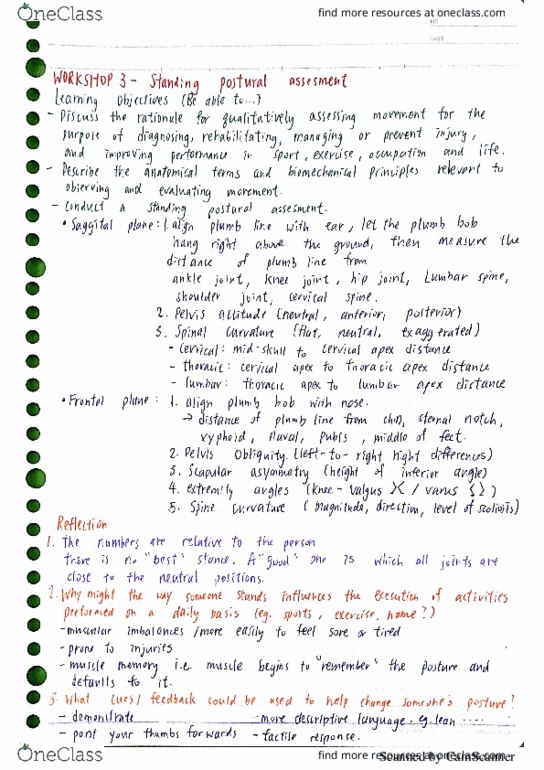 OneClass
find more resources at oneclass.com
NO
DATE
WORKSHOP 3 - Standing postural assesment
Learning objectives (Be able to...)
- Discuss the rationale for qualitatively assessing movement for the
purpose of diagnosing, rehabilitating, managing or prevent injury,
and improving performance in sport, exercise, occupation and life.
- Describe the anatomical terms and biomechanical principles relevant to
observing and evaluating movement.
- Conduct a standing postural assesment.
• Saggital plane: 1. align plumb line with ear, let the plumb bob
hang right above the ground, then measure the
distance of plumb line from
ankle joint, knee joint, hip joint, Lumbar spine,
shoulder joint, cervical spine.
2. Pelvis attitude (neutral, anterior, posterior)
3. Spinal curvature (flat, neutral, exaggerated)
- cervical: mid-skull to cervical apex distance
- thoracic: cervical apex to thoracic apex distance
- lumbar: thoracic apex to lumbar apex distance
• Frontal plane: 1. align plumb bob with nose.
→ distance of plumb line from chin, sternal notch,
xyphoid, naval, pubis, middle of feet.
2. Pelvis obliquity (left-to-right hight differences)
3. Scapular asymmetry (height of inferior angle)
4. extremity angles (knee - valgus / varus)
5. Spine curvature (magnitude, direction, level of scoliosis)
Reflection
1. The numbers are relative to the person
there is no "best" stance. A "good" one is which all joints are
close to the neutral positions.
2. Why might the way someone stands influences the execution of activities
performed on a daily basis (eg. sports, exercise, home?)
- muscular imbalances / more easily to feel sore or tired
- prone to injuries
- muscle memory i.e. muscle begins to "remember" the posture and
defaults to it.
3. What cues/ feedback could be used to help change someone's posture?
- demonstrate - more descriptive language. eg. lean ....
- point your thumbs forwards - tactile response.
OneClass
find more resources at oneclass.com
Scanned by CamScanner